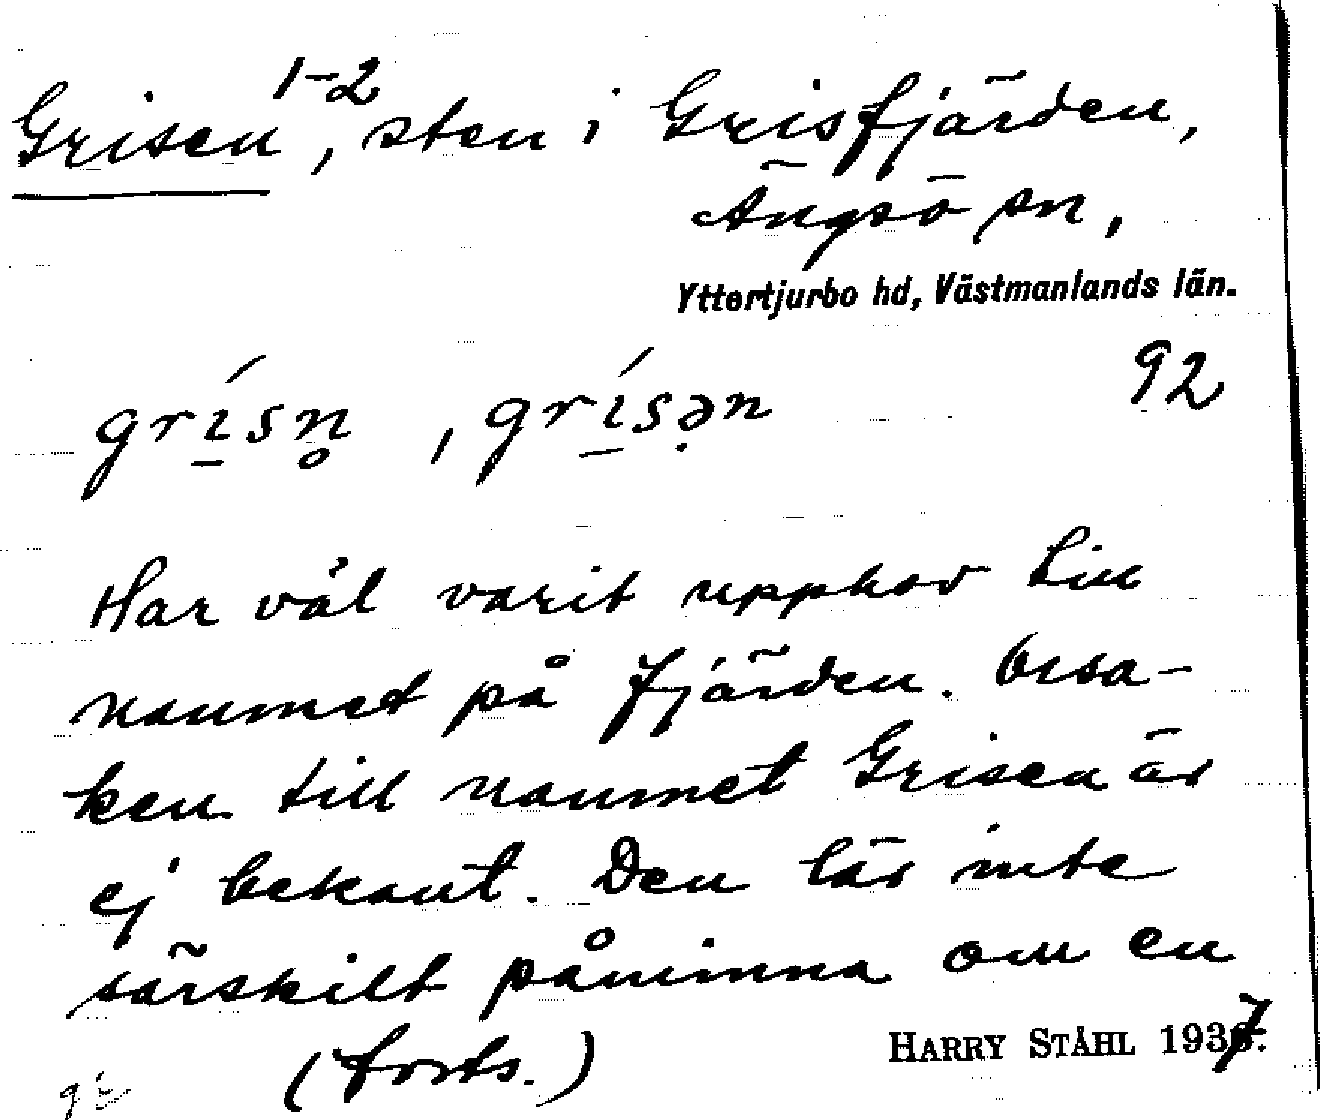 Grisen 1-2, sten i Grisfjärden,
Ängsö sn,
Yttertjurbo hd, Västmanlands län.
92
grísn̥, grísə̣n
Har väl varit upphov till
namnet på fjärden. Orsa-
ken till namnet Grisen är
ej bekant. Den lär inte
särskilt påminna om en
(forts.)
HARRY STÅHL 1937.